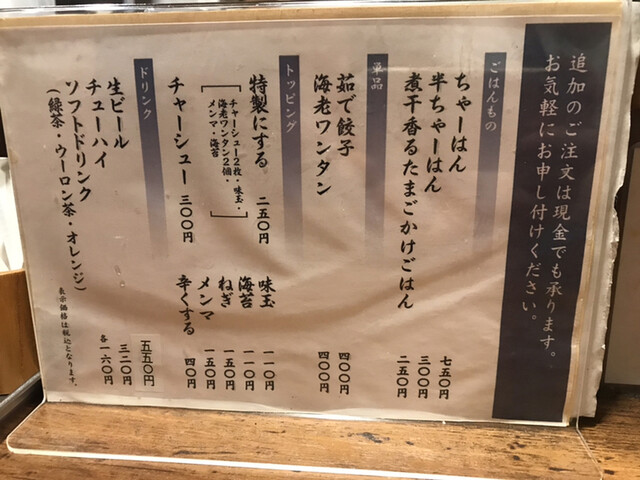 追加のご注文は現金でも承ります。
お気軽にお申し付けください。
ごはんもの
ちゃーはん 七五〇円
半ちゃーはん 三〇〇円
煮干香るたまごかけごはん 二五〇円
単品
茹で餃子 四〇〇円
海老ワンタン 四〇〇円
トッピング
特製にする 二五〇円
チャーシュー2枚・味玉・
海老ワンタン2個・
メンマ・海苔
チャーシュー 三〇〇円
味玉 一一〇円
海苔 一一〇円
ねぎ 一五〇円
メンマ 一五〇円
辛くする 四〇円
ドリンク
生ビール 五五〇円
チューハイ 三二〇円
ソフトドリンク 各一六〇円
(緑茶・ウーロン茶・オレンジ)
表示価格は税込となります。